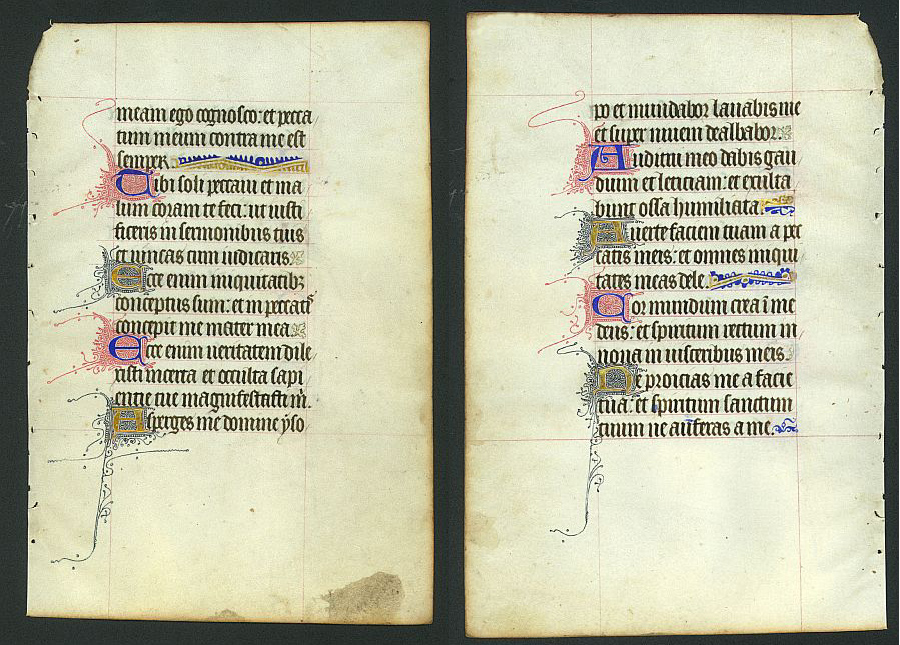 meam ego cognosco: et pecca
tum meum contra me est
semper.
Tibi soli peccaui et ma
lum coram te feci: ut iusti
ficeris in sermonibus tuis
et uincas cum iudicaris
Ecce enim iniquitatibꝫ
conceptus sum: et in peccatis
concepit me mater mea
Ecce enim ueritatem dile
xisti incerta et occulta sapi
entie tue magnifestasti m̄.
Asperges me domine yso
po et mundabor lauabis me
et super niuem dealbabor.
Auditui meo dabis gau
dium et leticiam: et exulta
bunt ossa humilitata.
Auerte faciem tuam a pec
catis meis: et omnes iniqui
tates meas dele.
Cor mundum crea ī me
deus: et spiritum rectum in
noua in uisceribus meis.
Ne proicias me a facie
tua: et spiritum sanctum
tuum ne auferas a me.